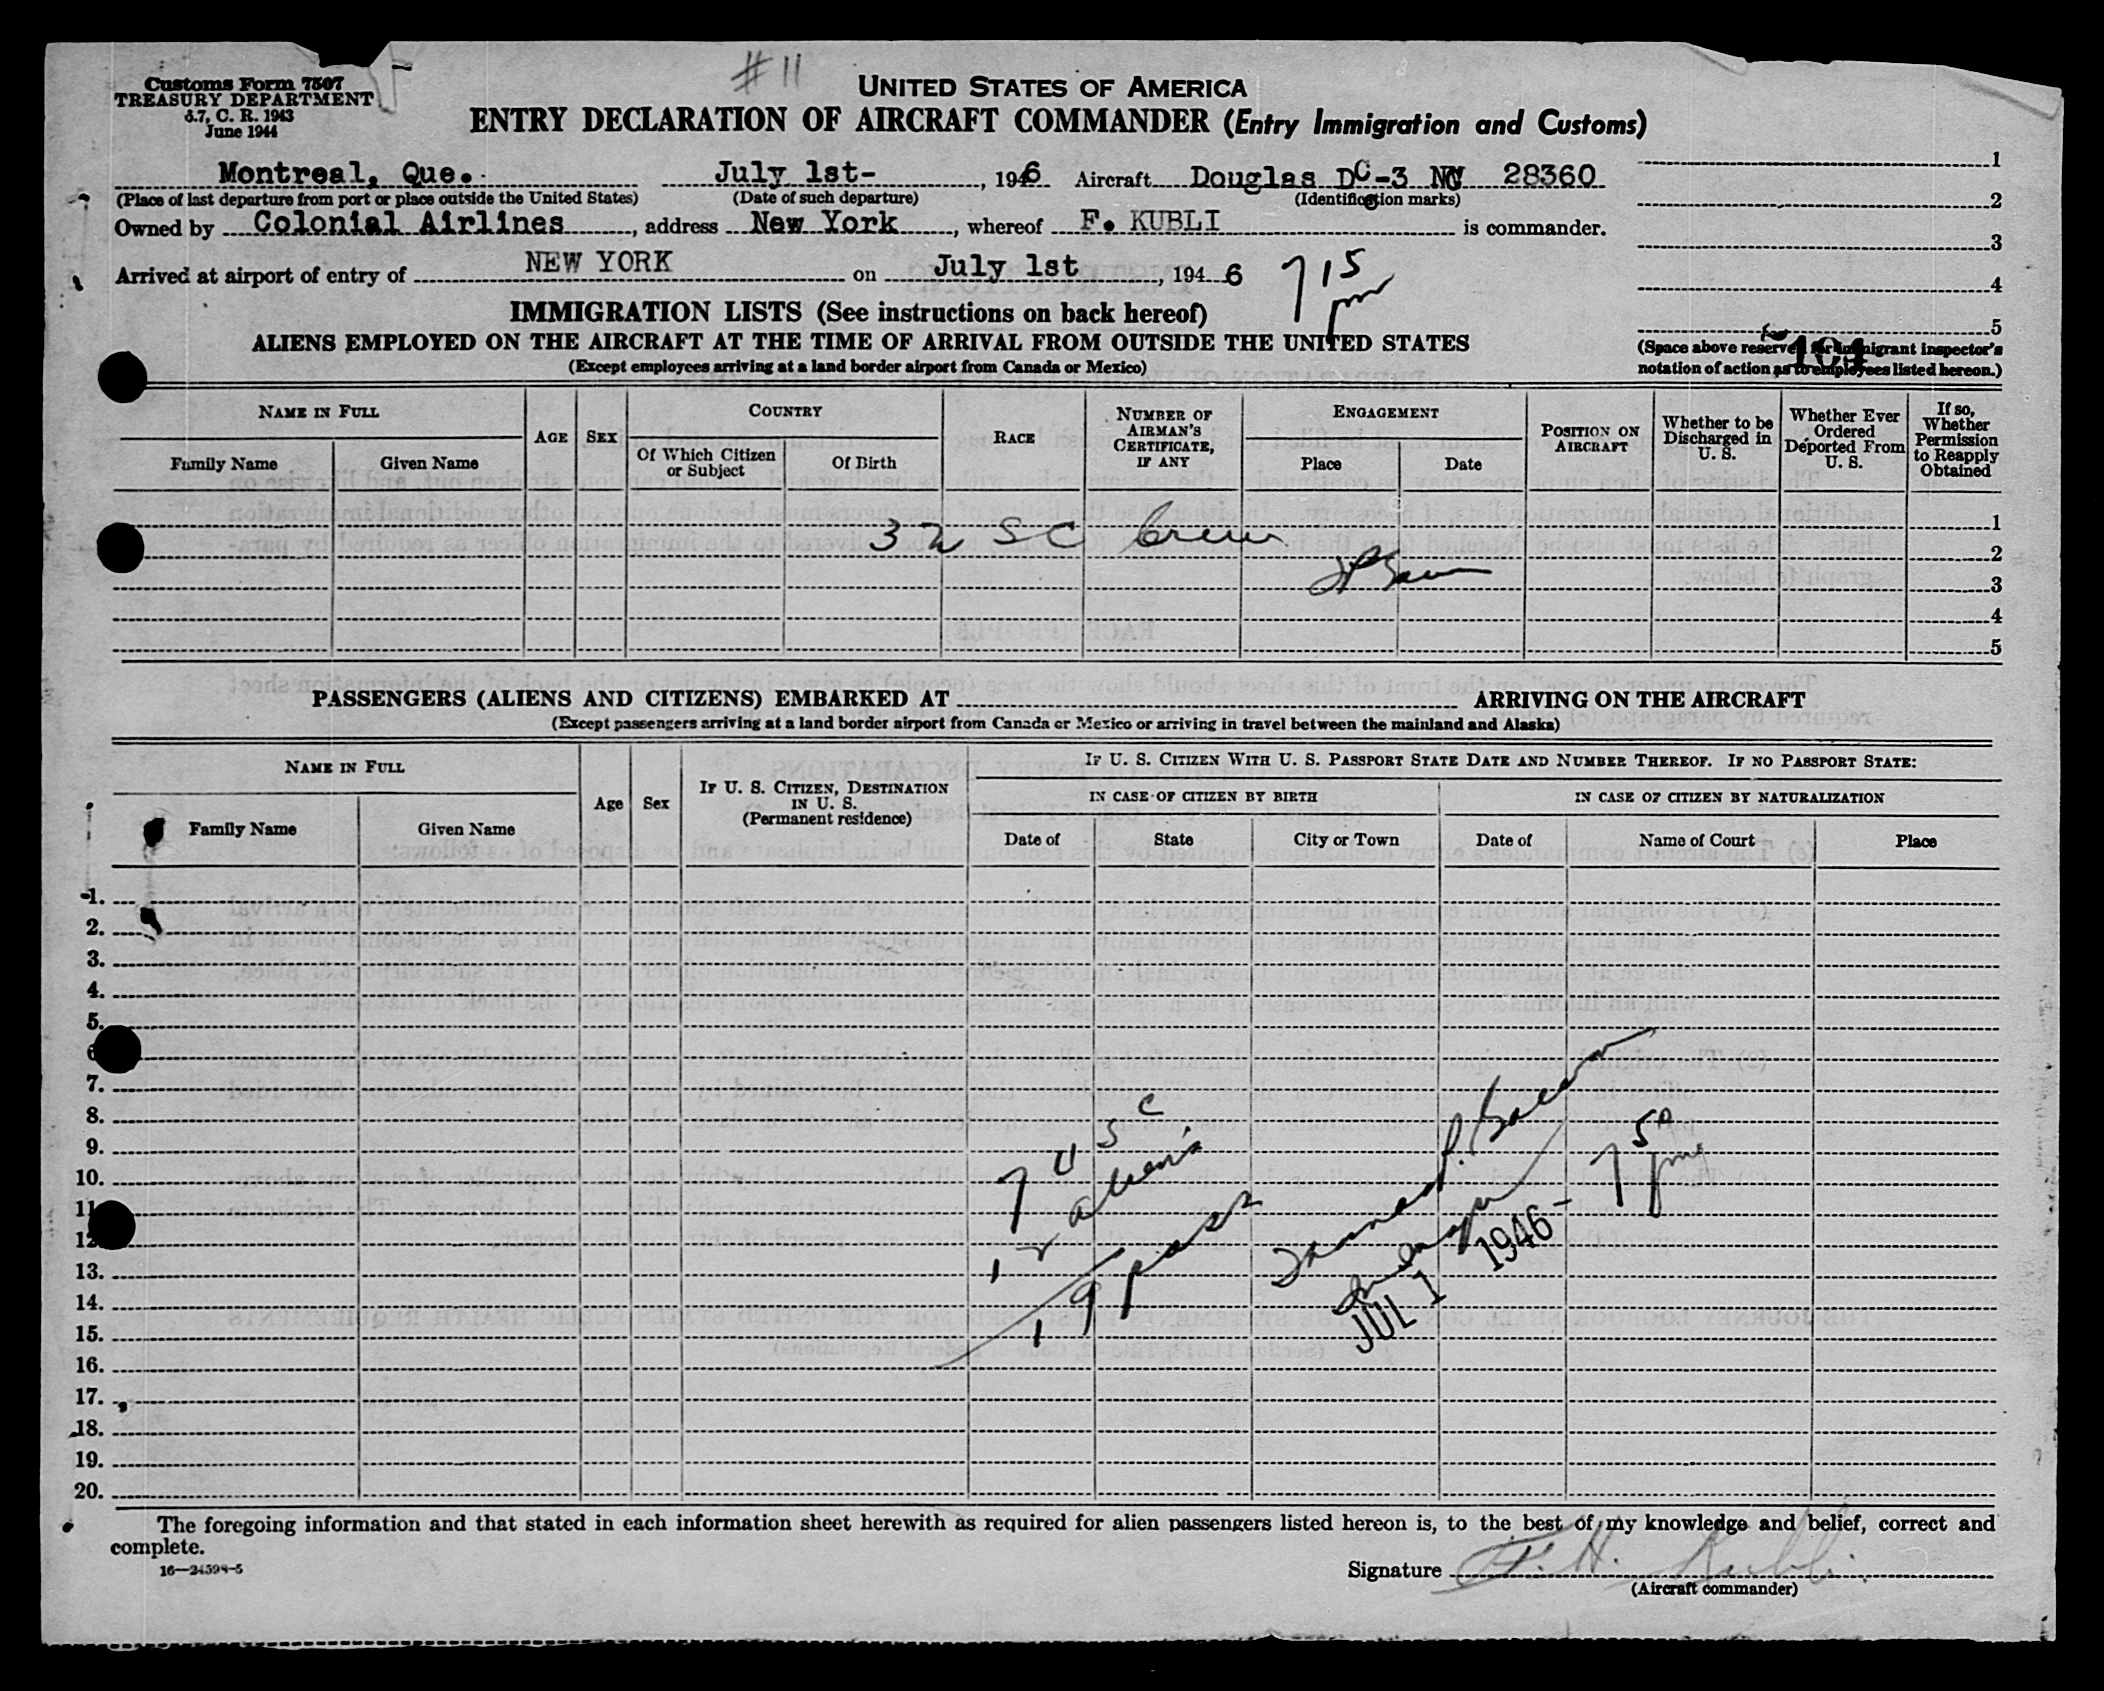 # 11
Customs Form 7507
TREASURY DEPARTMENT
6.7, C. R. 1943
June 1944
UNITED STATES OF AMERICA
ENTRY DECLARATION OF AIRCRAFT COMMANDER (Entry Immigration and Customs)
Montreal, Que. July 1st- , 1946 Aircraft Douglas DC-3 NC 28360
(Place of last departure from port or place outside the United States) (Date of such departure) (Identification marks)
Owned by Colonial Airlines, address New York, whereof F. KUBLI is commander.
Arrived at airport of entry of NEW YORK on July 1st, 1946 7 15 pm
1
2
3
4
5
(Space above reserved for immigrant inspector's
notation of action as to employees listed hereon.)
IMMIGRATION LISTS (See instructions on back hereof)
ALIENS EMPLOYED ON THE AIRCRAFT AT THE TIME OF ARRIVAL FROM OUTSIDE THE UNITED STATES
(Except employees arriving at a land border airport from Canada or Mexico)
NAME IN FULL
Family Name Given Name
AGE SEX
COUNTRY
Of Which Citizen or Subject
Of Birth
RACE
NUMBER OF AIRMAN'S CERTIFICATE, IF ANY
ENGAGEMENT
Place Date
POSITION ON AIRCRAFT
Whether to be Discharged in U. S.
Whether Ever Ordered Deported From U. S.
If so, Whether Permission to Reapply Obtained
3 U S C Crew
1
2
3
4
5
PASSENGERS (ALIENS AND CITIZENS) EMBARKED AT ARRIVING ON THE AIRCRAFT
(Except passengers arriving at a land border airport from Canada or Mexico or arriving in travel between the mainland and Alaska)
NAME IN FULL
Family Name Given Name
Age Sex
IF U. S. CITIZEN, DESTINATION IN U. S.
(Permanent residence)
IF U. S. CITIZEN WITH U. S. PASSPORT STATE DATE AND NUMBER THEREOF. IF NO PASSPORT STATE:
IN CASE OF CITIZEN BY BIRTH IN CASE OF CITIZEN BY NATURALIZATION
Date of State City or Town Date of Name of Court Place
1.
2.
3.
4.
5.
6
7.
8.
9.
10.
11
12
13.
14.
15.
16.
17.
18.
19.
20.
7 U S C
12 aliens
19 pass
JUL 1 1946 - 7 50 pm
The foregoing information and that stated in each information sheet herewith as required for alien passengers listed hereon is, to the best of my knowledge and belief, correct and
complete.
16—24598-5
Signature F. H. Kubli
(Aircraft commander)